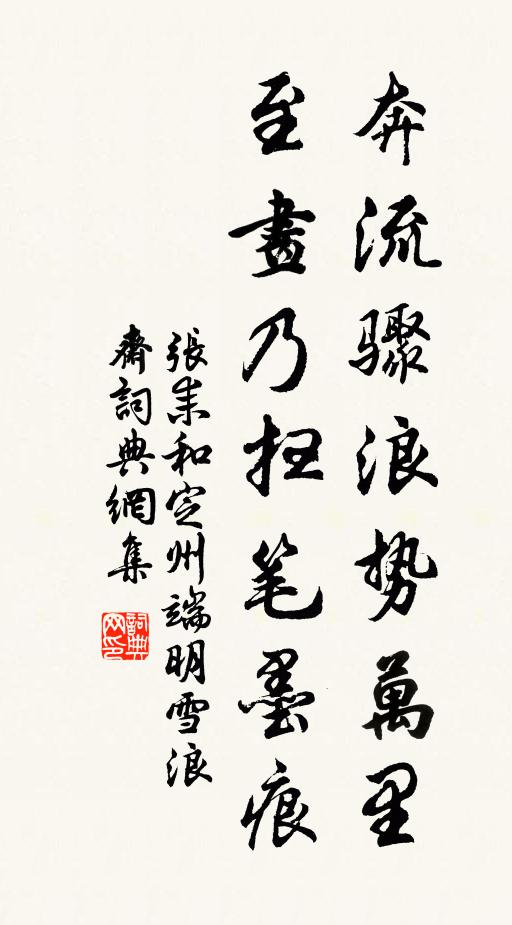 奔流骤浪势萬里
至畫乃扫笔墨痕
張耒和定州端明雪浪
齋詞典網集
詞典网印